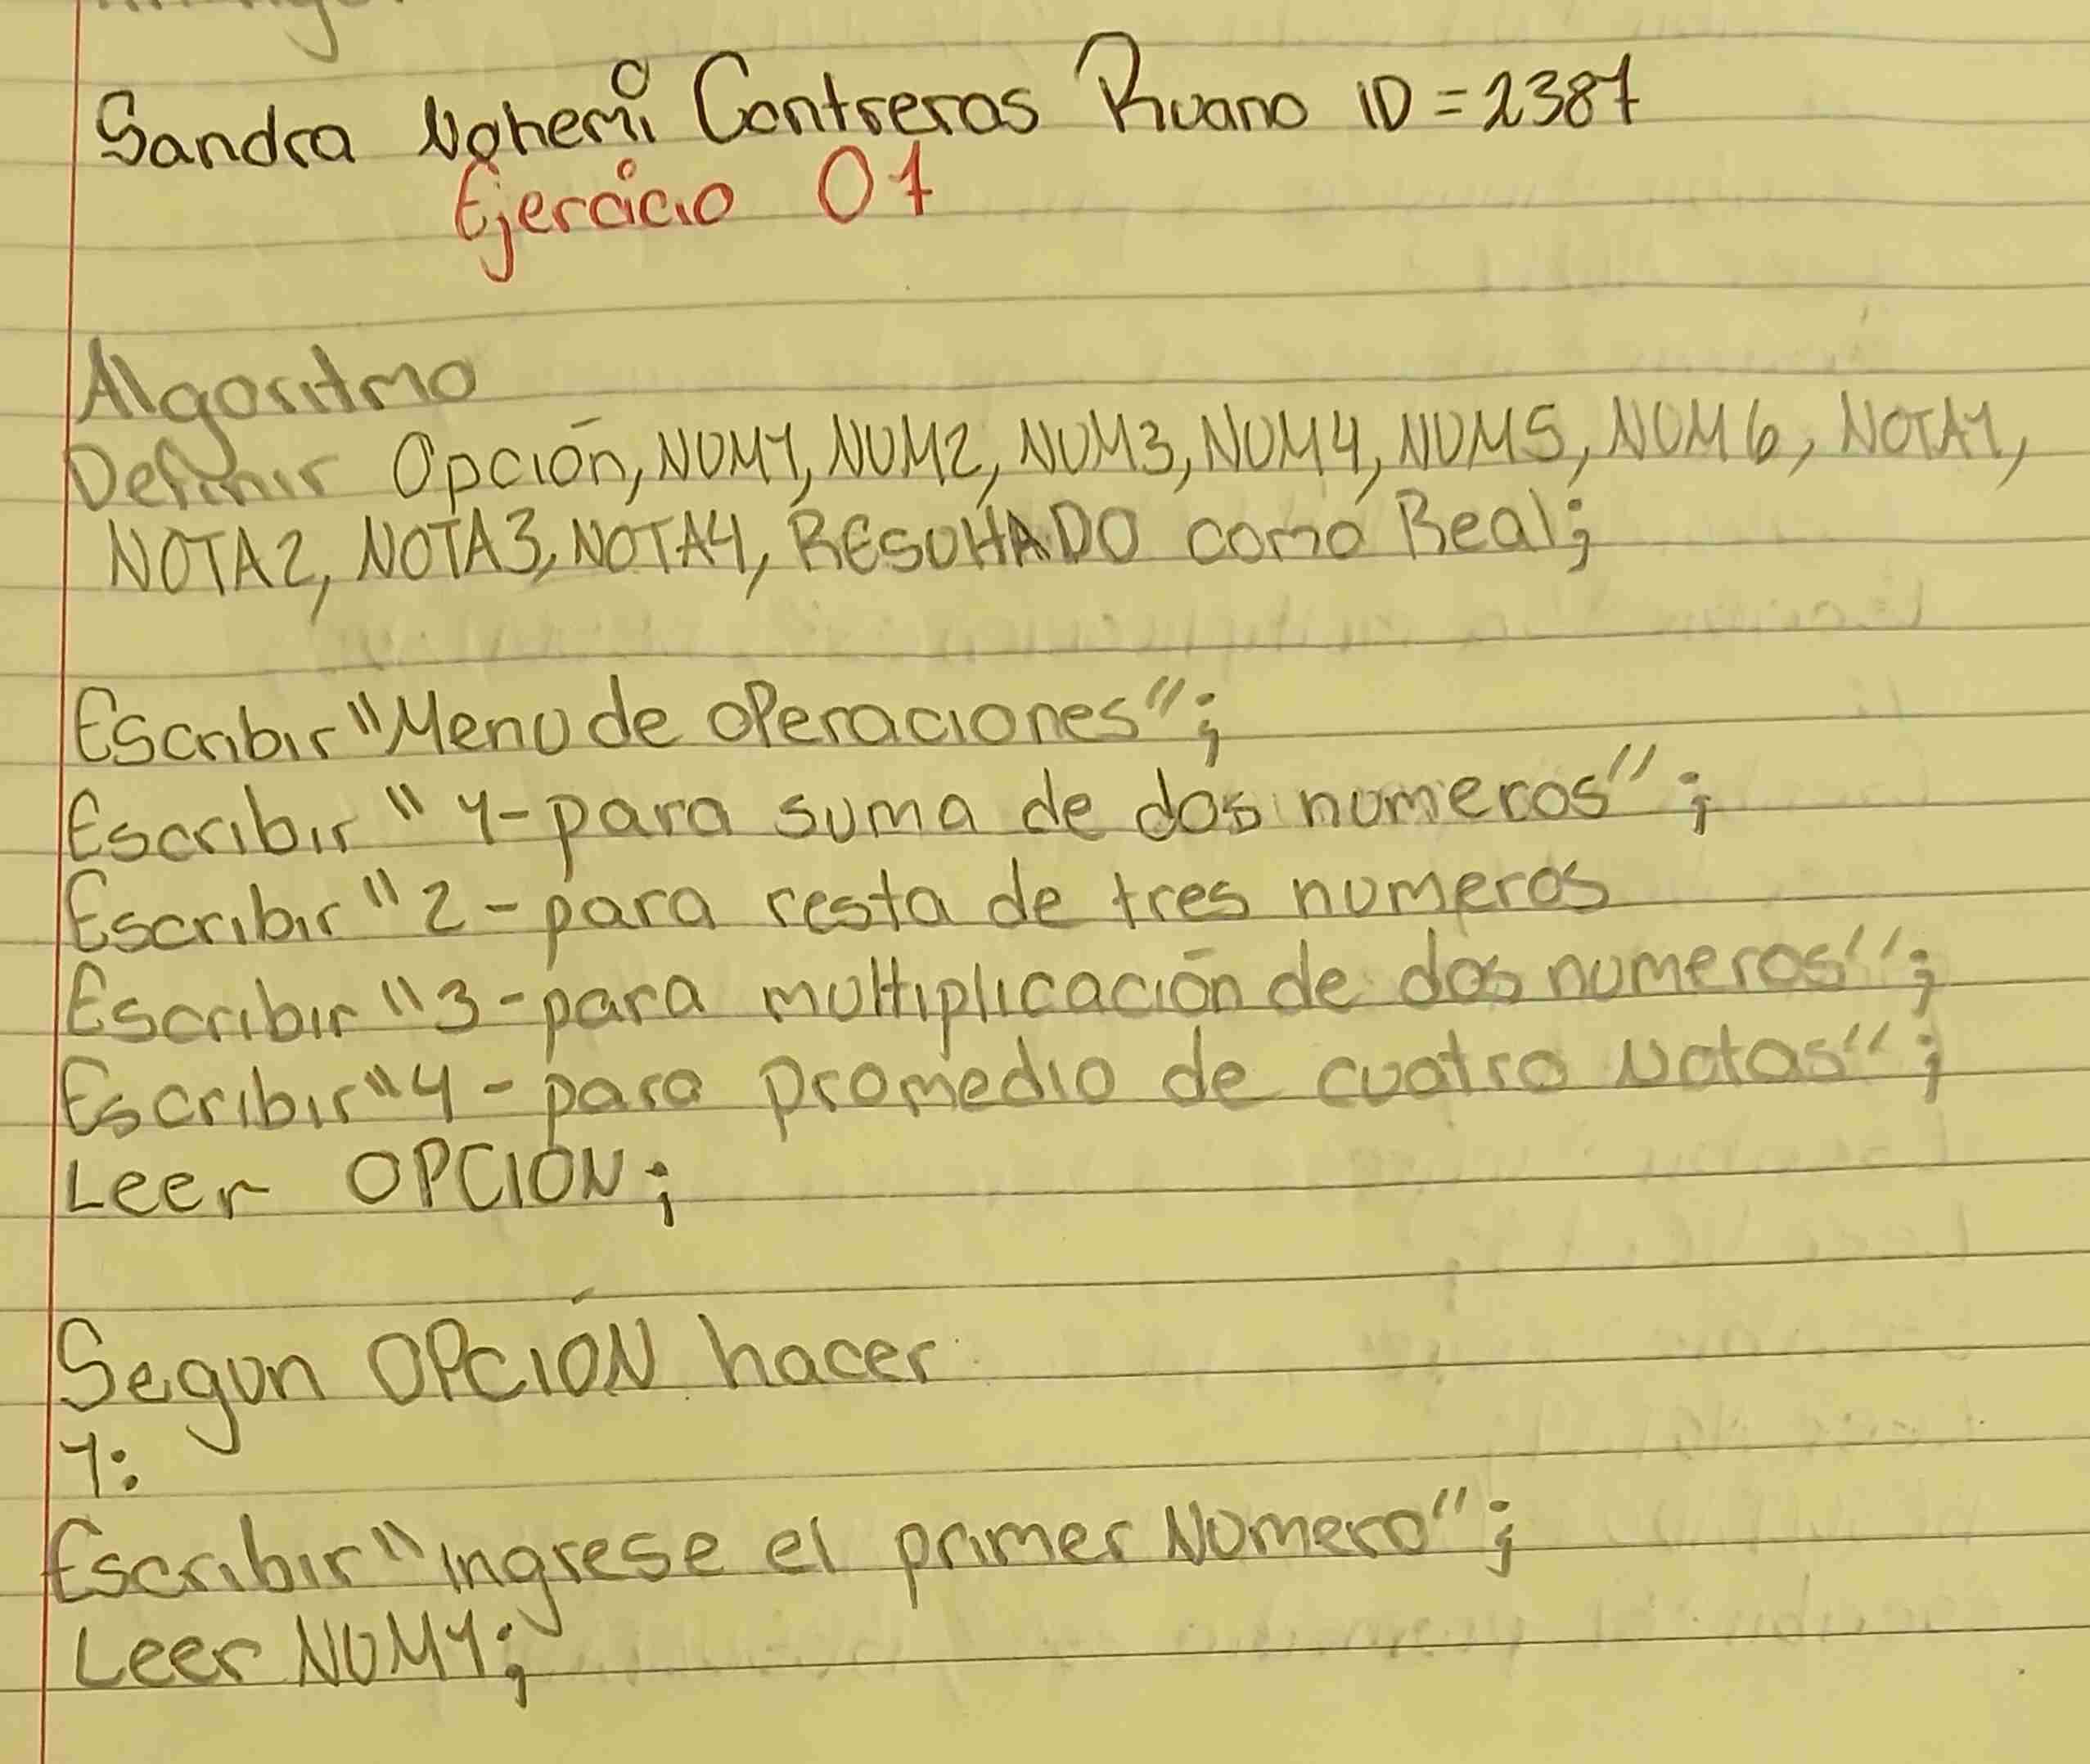 Sandra Nohemi Contreras Ruano ID = 2387
Ejercicio 01
Algoritmo
Definir Opción, NUM1, NUM2, NUM3, NUM4, NUM5, NUM6, NOTA1,
NOTA2, NOTA3, NOTA4, RESUltADO como Real;
Escribir "Menu de operaciones";
Escribir "1-para suma de dos numeros";
Escribir "2-para resta de tres numeros
Escribir "3-para multiplicación de dos numeros";
Escribir "4-para promedio de cuatro Notas";
Leer OPCIÓN;
Segun OPCIÓN hacer
1:
Escribir "ingrese el primer Numero";
Leer NUM1;